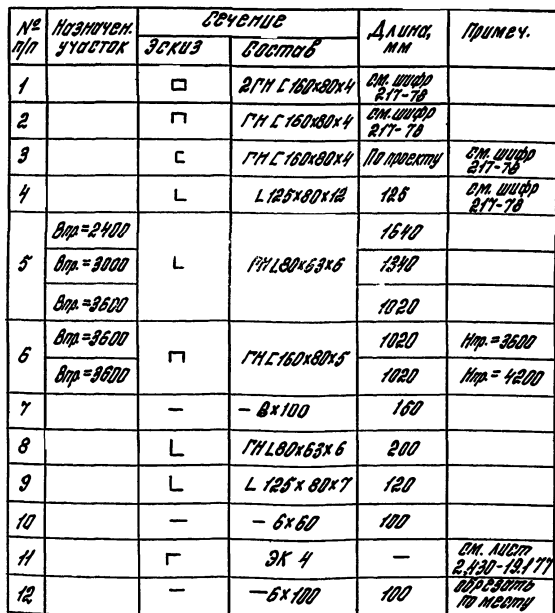 № п/п Назначен. участок Сечение Длина, мм Примеч.
Эскиз Состав
1 2ГН [ 160х80х4 см. шифр 217-78
2 ГН [ 160х80х4 см. шифр 217-78
3 ГН [ 160х80х4 По проекту см. шифр 217-78
4 L 125х80х12 125 см. шифр 217-78
5 Впр.=2400 ГН L80х63х6 1640
Впр.=3000 1340
Впр.=3600 1020
6 Впр.=3600 ГН [ 160х80х5 1020 Нпр.=3600
Впр.=3600 1020 Нпр.=4200
7 – 8х100 160
8 ГН L80х63х6 200
9 L 125х80х7 120
10 – 6х60 100
11 ЭК 4 – см. лист 2.430-19.1 77
12 – 6х100 100 обрезать по месту